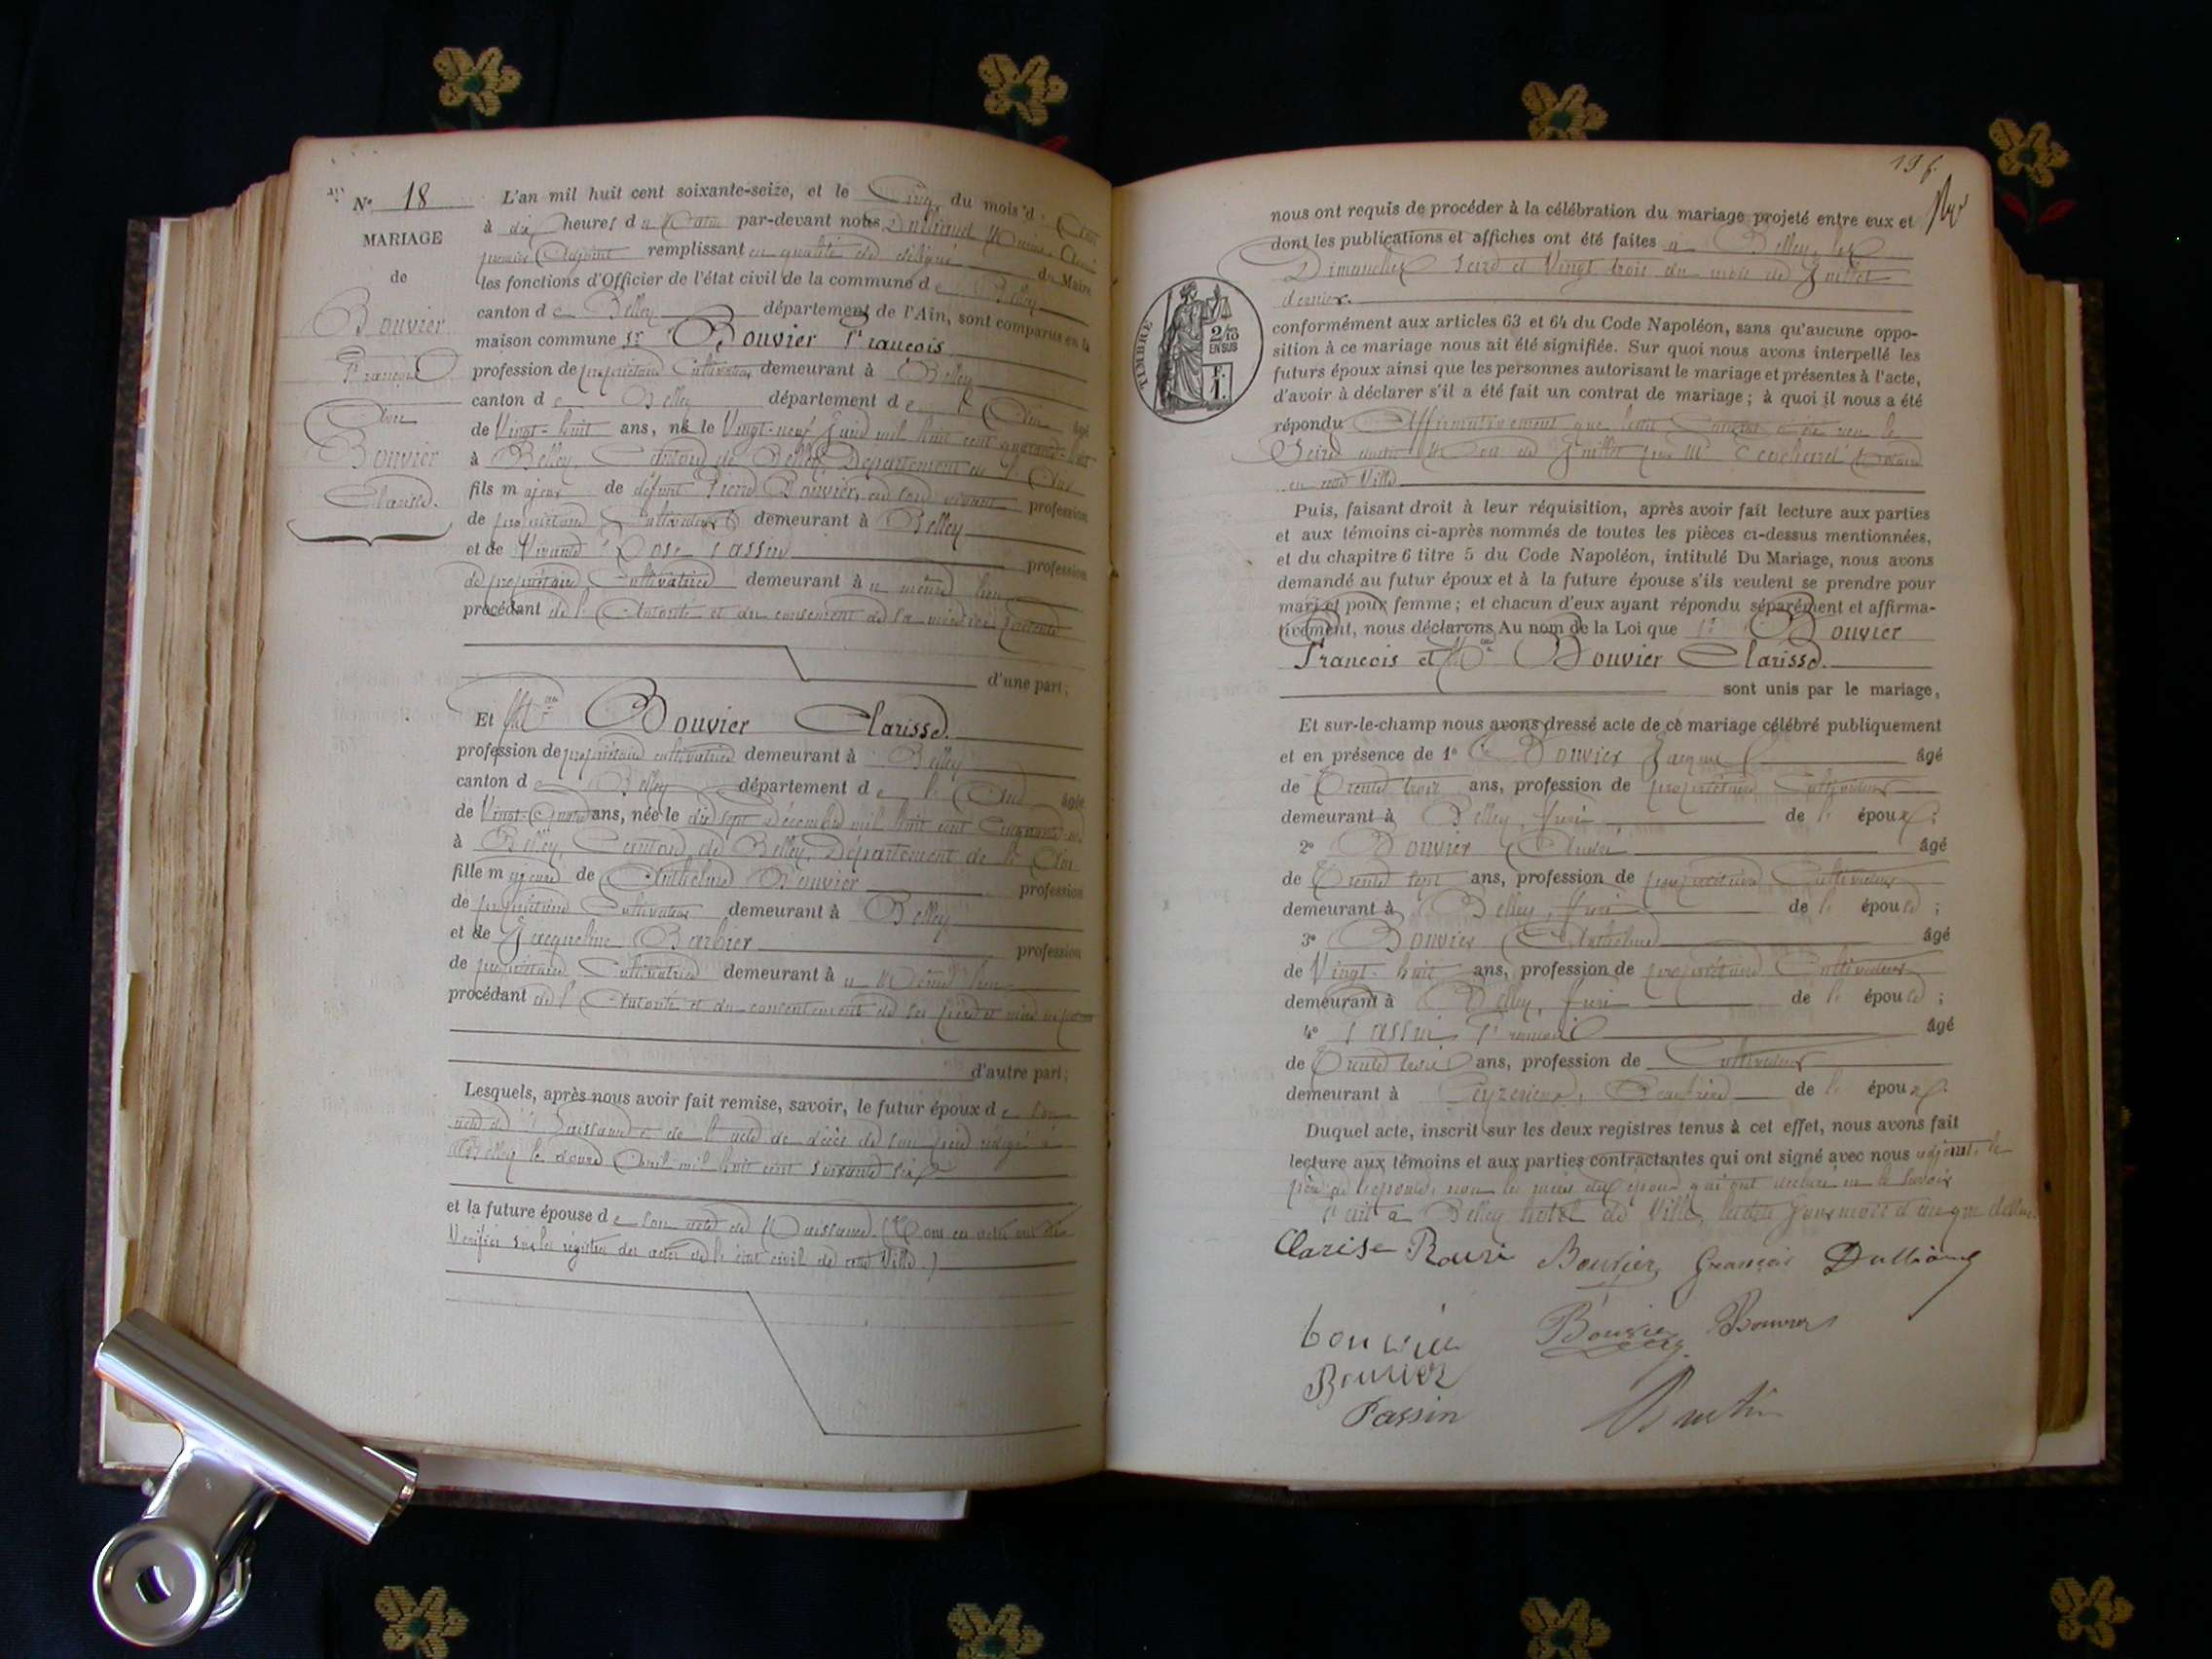 N° 18
MARIAGE
de
Bouvier
François
Et
Bouvier
Clarisse.
L'an mil huit cent soixante-seize, et le Cinq du mois d'
à dix heures du Matin par-devant nous
premier Adjoint remplissant en qualité de délégué du Maire
les fonctions d'Officier de l'état civil de la commune de Belley
canton de Belley département de l'Ain, sont comparus en la
maison commune Sr Bouvier François
profession de propriétaire Cultivateur demeurant à Belley
canton de Belley département de l'Ain âgé
de Vingt-huit ans, né le Vingt-neuf Juin mil huit cent quarante-huit
à Belley, Canton de Belley, Département de l'Ain
fils majeur de défunt Pierre Bouvier, en son vivant profession
de propriétaire Cultivateur demeurant à Belley
et de Vivante Rose Passin profession
de propriétaire Cultivatrice demeurant au même lieu
procédant de l'Autorité et du consentement de sa mère ici présente
d'une part;
Et Bouvier Clarisse.
profession de propriétaire cultivatrice demeurant à Belley
canton de Belley département de l'Ain âgée
de Vingt-quatre ans, née le dix sept Décembre mil huit cent Cinquante un
à Belley, Canton de Belley, Département de l'Ain
fille majeure de Anthelme Bouvier profession
de propriétaire Cultivateur demeurant à Belley
et de Jacqueline Barbier profession
de propriétaire Cultivatrice demeurant au Même lieu
procédant de l'Autorité et du consentement de ses père et mère
d'autre part;
Lesquels, après nous avoir fait remise, savoir, le futur époux de son
acte de Naissance et de l'acte de décès de son père rédigé à
Belley le douze Avril mil huit cent soixante six
et la future épouse de son acte de Naissance. (Tous ces actes ont été
Vérifiés sur les registres des actes de l'état civil de cette Ville.)
195
nous ont requis de procéder à la célébration du mariage projeté entre eux et
dont les publications et affiches ont été faites à Belley, les
Dimanches Seize et Vingt trois du mois de Juillet
dernier.
TIMBRE
2/10
EN SUS
F.
1.
conformément aux articles 63 et 64 du Code Napoléon, sans qu'aucune oppo-
sition à ce mariage nous ait été signifiée. Sur quoi nous avons interpellé les
futurs époux ainsi que les personnes autorisant le mariage et présentes à l'acte,
d'avoir à déclarer s'il a été fait un contrat de mariage; à quoi il nous a été
répondu Affirmativement que ledit Contrat a été reçu le
Seize dudit Mois de Juillet par Me Notaire
en cette Ville
Puis, faisant droit à leur réquisition, après avoir fait lecture aux parties
et aux témoins ci-après nommés de toutes les pièces ci-dessus mentionnées,
et du chapitre 6 titre 5 du Code Napoléon, intitulé Du Mariage, nous avons
demandé au futur époux et à la future épouse s'ils veulent se prendre pour
mari et pour femme; et chacun d'eux ayant répondu séparément et affirma-
tivement, nous déclarons Au nom de la Loi que Sr Bouvier
François et Bouvier Clarisse.
sont unis par le mariage,
Et sur-le-champ nous avons dressé acte de ce mariage célébré publiquement
et en présence de 1° Bouvier Jacques âgé
de Trente trois ans, profession de propriétaire Cultivateur
demeurant à Belley, frère de l'époux;
2° Bouvier André âgé
de Trente sept ans, profession de propriétaire Cultivateur
demeurant à Belley, frère de l'épouse;
3° Bouvier Anthelme âgé
de Vingt-huit ans, profession de propriétaire Cultivateur
demeurant à Belley, frère de l'épouse;
4° Passin François âgé
de Trente trois ans, profession de Cultivateur
demeurant à Ceyzerieu, de l'époux.
Duquel acte, inscrit sur les deux registres tenus à cet effet, nous avons fait
lecture aux témoins et aux parties contractantes qui ont signé avec nous adjoint, le
père de l'épouse, non les mères des époux qui ont déclaré ne le savoir
Fait à Belley hôtel de Ville, lesdits jour mois et an que dessus.
Clarise Bouvier François
bouvier Bouvier Bouvier
Bouvier
Passin